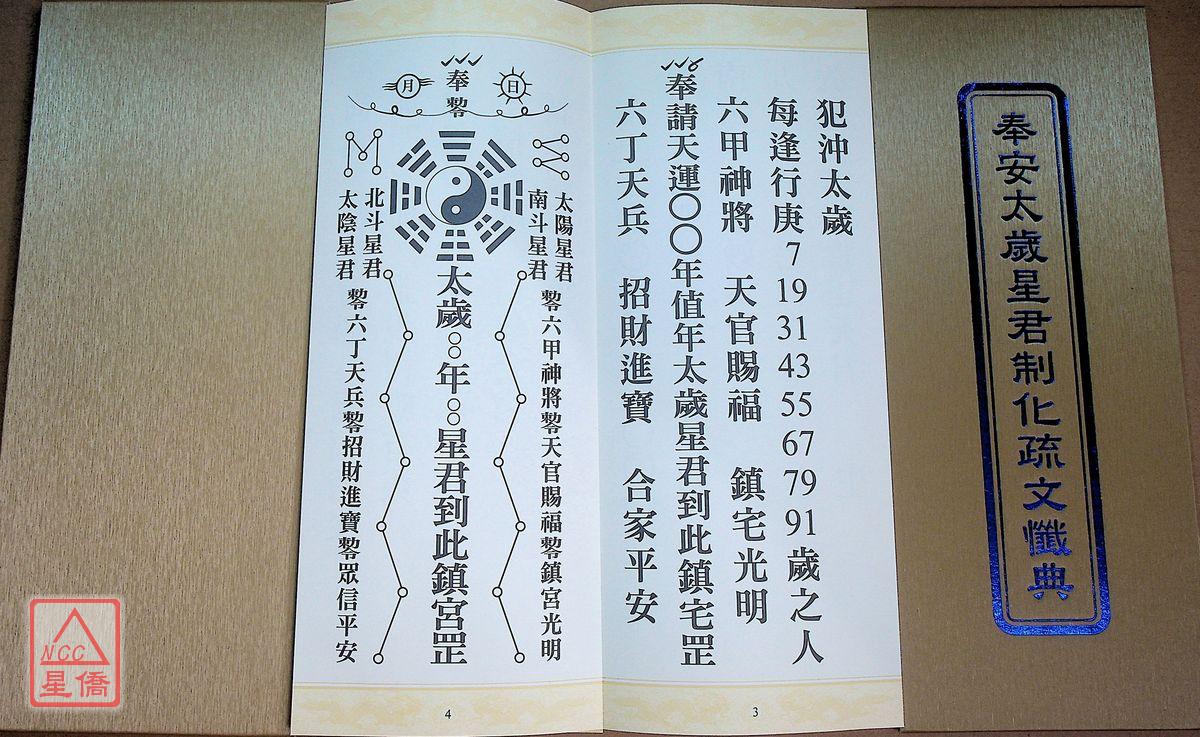 奉安太歲星君制化疏文懺典
犯沖太歲
每逢行庚7 19 31 43 55 67 79 91歲之人
六甲神將 天官賜福 鎮宅光明
奉請天運〇〇年值年太歲星君到此鎮宅罡
六丁天兵 招財進寶 合家平安
3
日
月
奉
太歲○○年○○星君到此鎮宮罡
太陽星君
南斗星君
北斗星君
太陰星君
六甲神將 天官賜福 鎮宮光明
六丁天兵 招財進寶 眾信平安
4
NCC
星僑